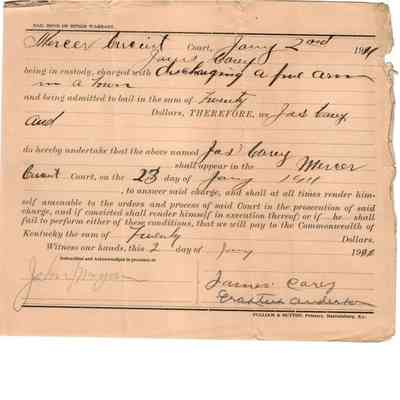 BAIL BOND OR BENCH WARRANT.
Mercer Circuit Court, Jany 2nd 1911
James Carey
being in custody, charged with discharging a fire arm
in a town
and being admitted to bail in the sum of Twenty
Dollars, THEREFORE, we, Jas Carey,
and
do hereby undertake that the above named Jas Carey
shall appear in the Mercer
Circuit Court, on the 23 day of Jany 1911
, to answer said charge, and shall at all times render him-
self amenable to the orders and process of said Court in the prosecution of said
charge, and if convicted shall render himself in execution thereof; or if he shall
fail to perform either of these conditions, that we will pay to the Commonwealth of
Kentucky the sum of Twenty Dollars.
Witness our hands, this 2 day of Jany 191
Subscribed and Acknowledged in presence of
John
James Carey
Anderson
PULLIAM & HUTTON, Printers, Harrodsburg, Ky.